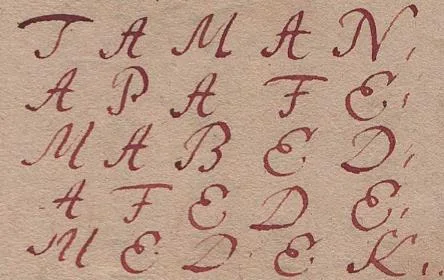 T A M A N,
A P A F E,
M A B E D,
A F E D E,
M E D E K.